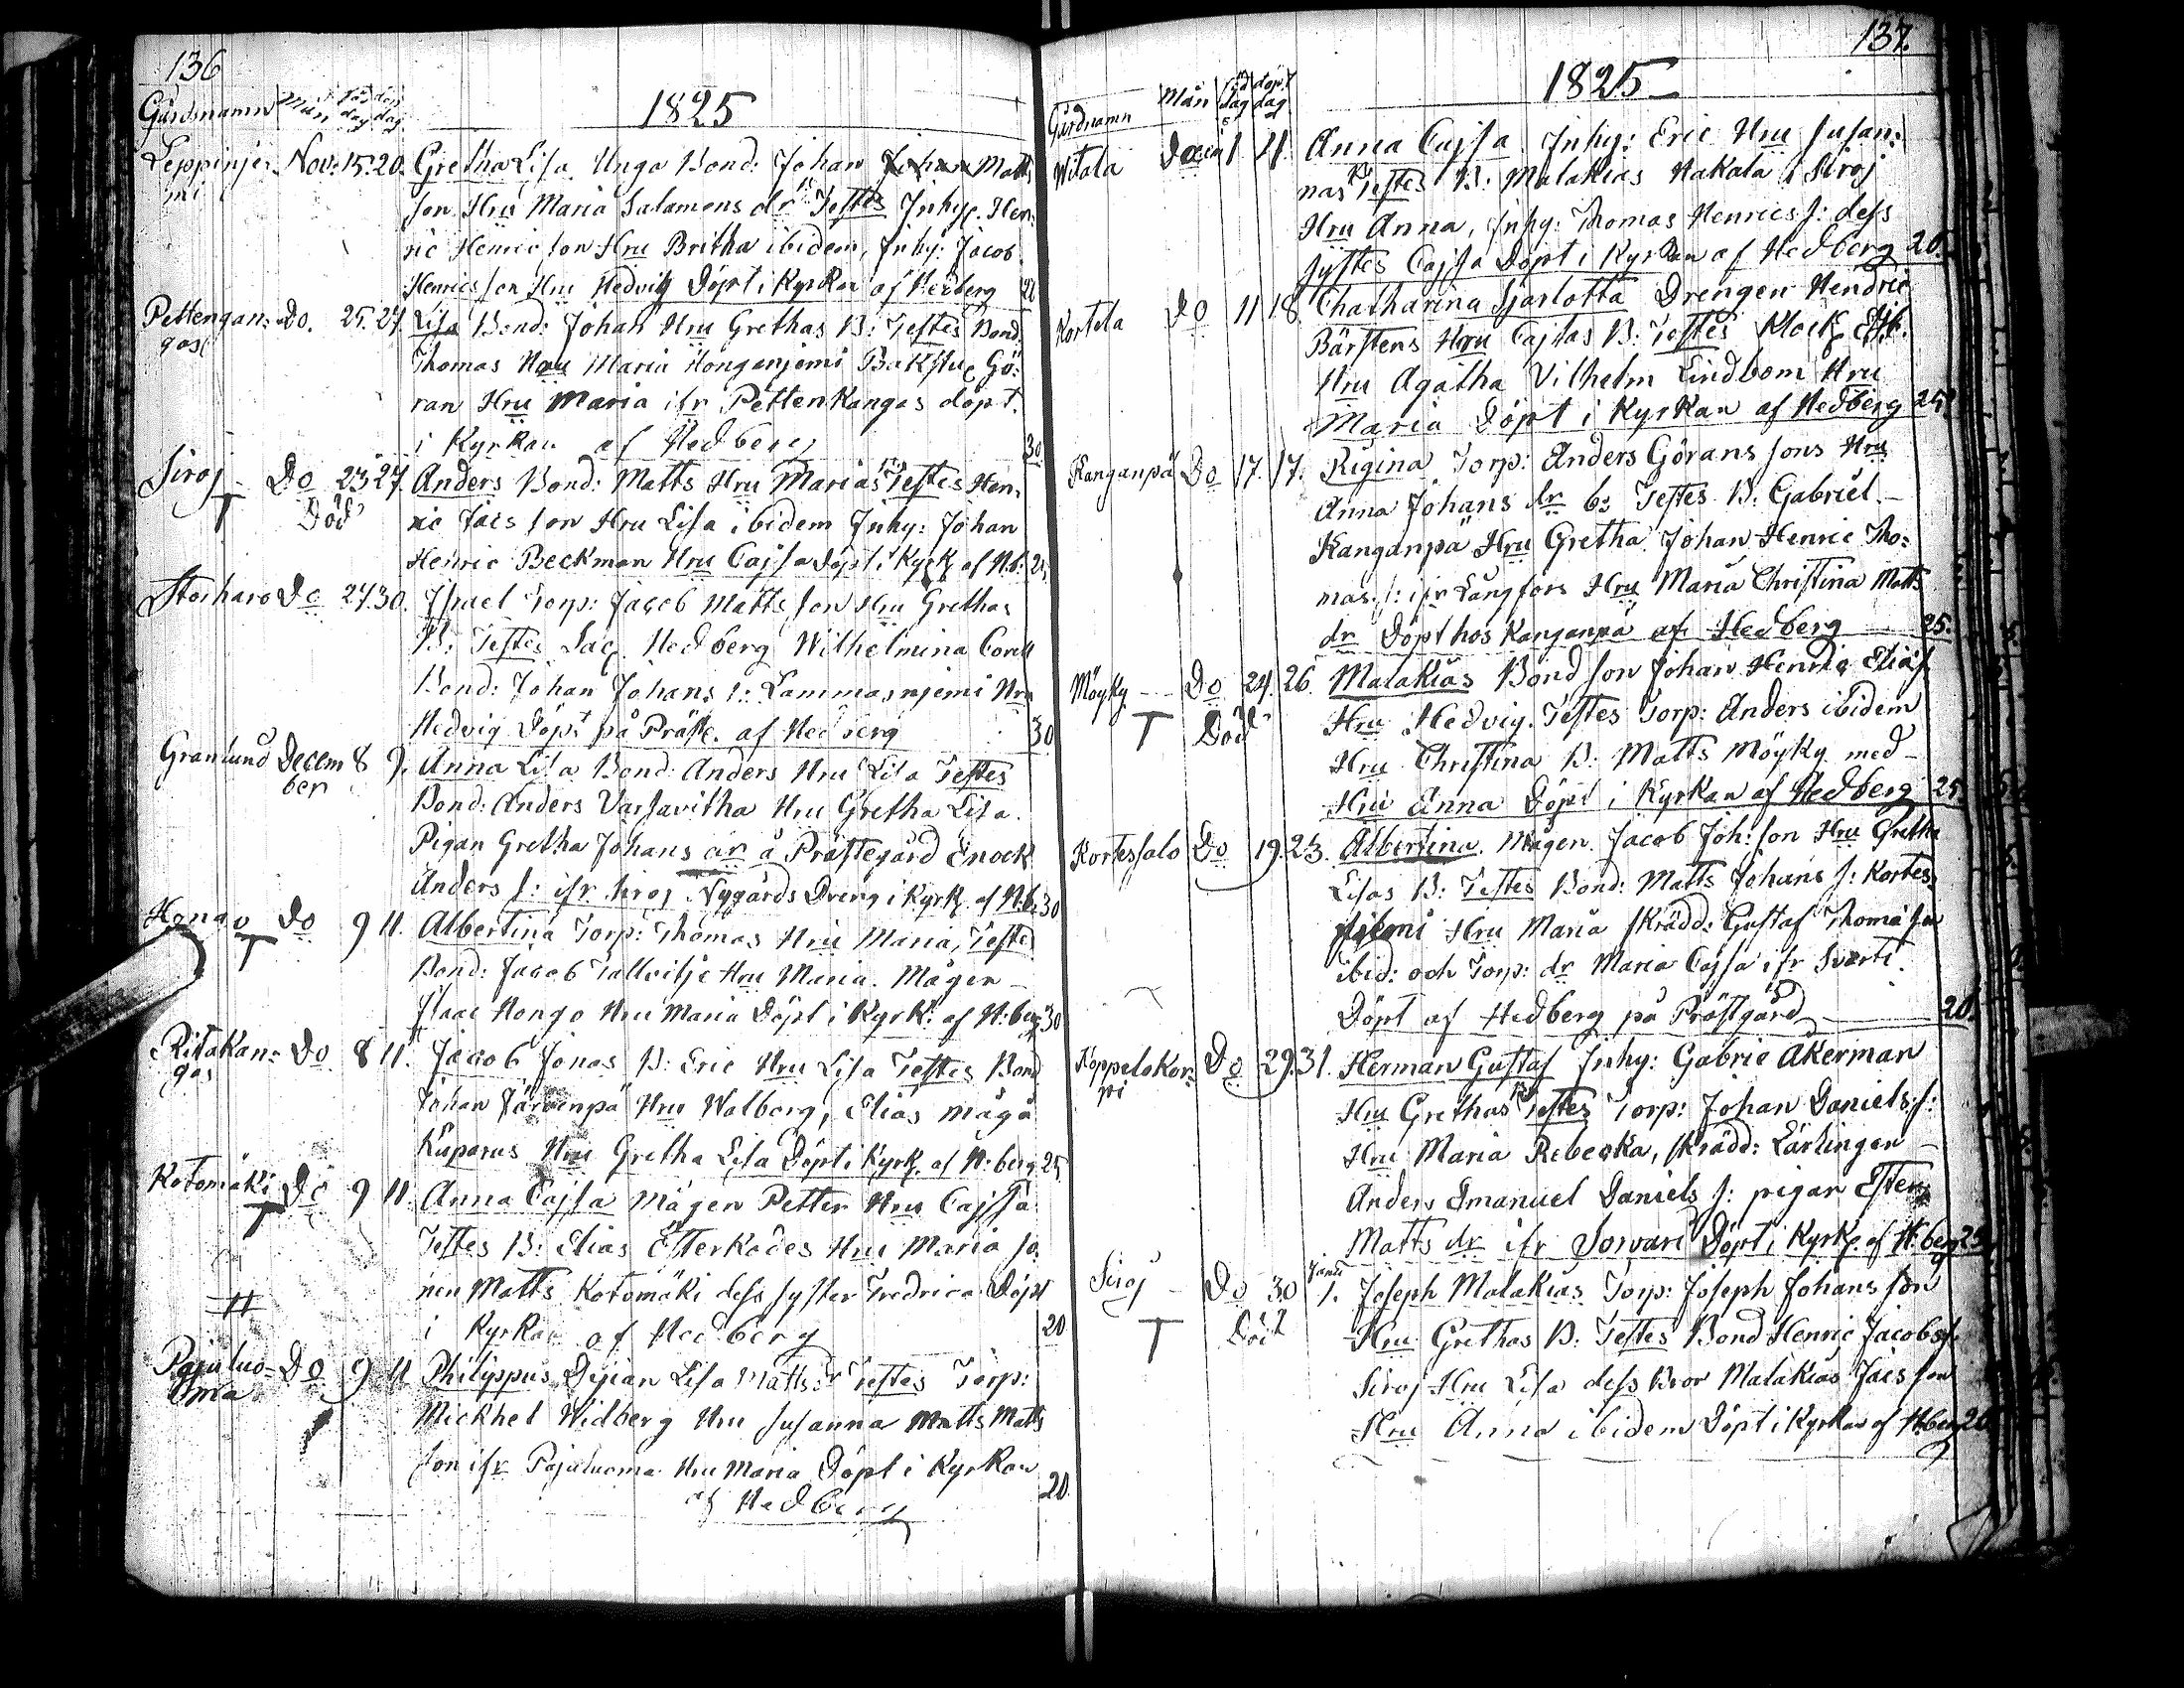 136
Gårdsnamn Mån föd dag döp dag 1825
Leppinje- Nov: 15. 20. Gretha Lisa Unga Bond: Johan Johan Matts
mi son Hru Maria Salamons dr B: Testes Inhys. Hen:
ric Henric son Hru Britha ibidem, Inhy: Jacob
Henrics son Hru Hedvig Döpt i Kyrkan af Hedberg
Pettengan: Do. 25. 27. Lisa Bond: Johan Hru Grethas B: Testes Bond.
gas Thomas Hru Maria Honganjemi Bakstuc Gö:
ran Hru Maria ifr Pettenkangas döpt.
i Kyrkan af Hedberg 30
Siroj Do 23 27. Anders Bond: Matts Hru Marias B: Testes Hen:
T Död ric Jacs son Hru Lisa ibidem Inhy: Johan
Henric Beckman Hru Cajsa döpt i Kyrk af H.b: 25
Storharo Do 27. 30. Israel Torp: Jacob Matts son Hru Grethas
B: Testes Sac. Hedberg Wilhelmina Corell
Bond: Johan Johans s: Lammasnjemi Hru
Hedvig Döpt på Präste. af Hedberg 30
Granlund Decem 8 9. Anna Lisa Bond: Anders Hru Lisa Testes
ber Bond: Anders Varsavitha Hru Gretha Lisa.
Pigan Gretha Johans dr å Prästegård Enock
Anders s: ifr Siroj Nygårds Dreng i Kyrk. af H.b. 30
Hongo Do 9 11. Albertina Torp: Thomas Hru Maria, Testes
T Bond: Jacob Tallvitje Hru Maria. Mågen
Isaac Hongo Hru Maria Döpt i Kyrk: af H:berg 30
Ritakan= Do 8 11. Jacob Jonas B: Eric Hru Lisa Testes Bond
gas Johan Järvenpä Hru Walborg, Elias mågå
Kuparus Hru Gretha Lisa Döpt i Kyrk. af H:berg 25
Kotomäki Do 9 11. Anna Cajsa Mågen Petter Hru Cajsa
T Testes B: Elias Österkades Hru Maria so
nen Matts Kotomäki dess syster Fredrica Döpt
H i Kyrkan af Hedberg 20
Pajuluo- Do 9 11 Philippus, Dejian Lisa Matts dr Testes Torp:
oma Mickhel Widberg Hru Susanna Matts Matts
son ifr Pajuluoma Hru Maria Döpt i Kyrkan
af Hedberg 20
137.
Gårdnamn Mån föd dag döpt dag 1825
Witala 1 4. Anna Cajsa Inhy: Eric Hru Susan:
nas B: Testes B: Malakias Hakala i Siroj
Hru Anna, Inhy: Thomas Henrics s: dess
systes Cajsa Döpt i Kyrkan af Hedberg 20.
Kortela Do 11 18 Chatharina Sjarlotta Drengen Hendric
Bärstens Hru Cajsas B: Testes Klock
Hru Agatha Vilhelm Lindbom Hru
Maria Döpt i Kyrkan af Hedberg 25
Kanganpä Do 17. 17. Rigina Torp: Anders Görans sons Hru
Anna Johans dr b: Testes B: Gabriel
Kanganpä Hru Gretha Johan Henric Tho:
mas s: ifr Långfors Hru Maria Christina Matts
dr Döpt hos Kanganpä af Hedberg 25.
Möyky Do 24. 26. Malakias Bond son Johan Henric Elias s
T Död Hru Hedvig. Testes Torp: Anders ibidem
Hru Christina B: Matts Möyky med
Hru Anna Döpt i Kyrkan af Hedberg 25.
Kortessalo Do 19. 23. Albertina Mågen Jacob Joh: son Hru Gretha
Lisas B: Testes Bond: Matts Johans s: Kortes
Hru Maria Skrädd: Gustaf Thoma son
ibid: och Torp: dr Maria Cajsa ifr Svarti.
Döpt af Hedberg på Prästgård 20.
Koppelokor: Do 29. 31. Herman Gustaf Inhy: Gabrie Åkerman
pi Hru Grethas B: Testes Torp: Johan Daniels s:
Hru Maria Rebecka, Skrädd: Lärlingen
Anders Emanuel Daniels s: pigan Ester
Matts dr ifr Sorvari Döpt i Kyrk. af H:berg 25
Siroj Do 30 Janu 1. Joseph Malakias Torp: Joseph Johans son
T Död Hru Grethas B: Testes Bond Henric Jacobs s
Siroj Hru Lisa dess Bror Malakias Jacs son
Hru Anna ibidem Döpt i Kyrkan af H:berg 20